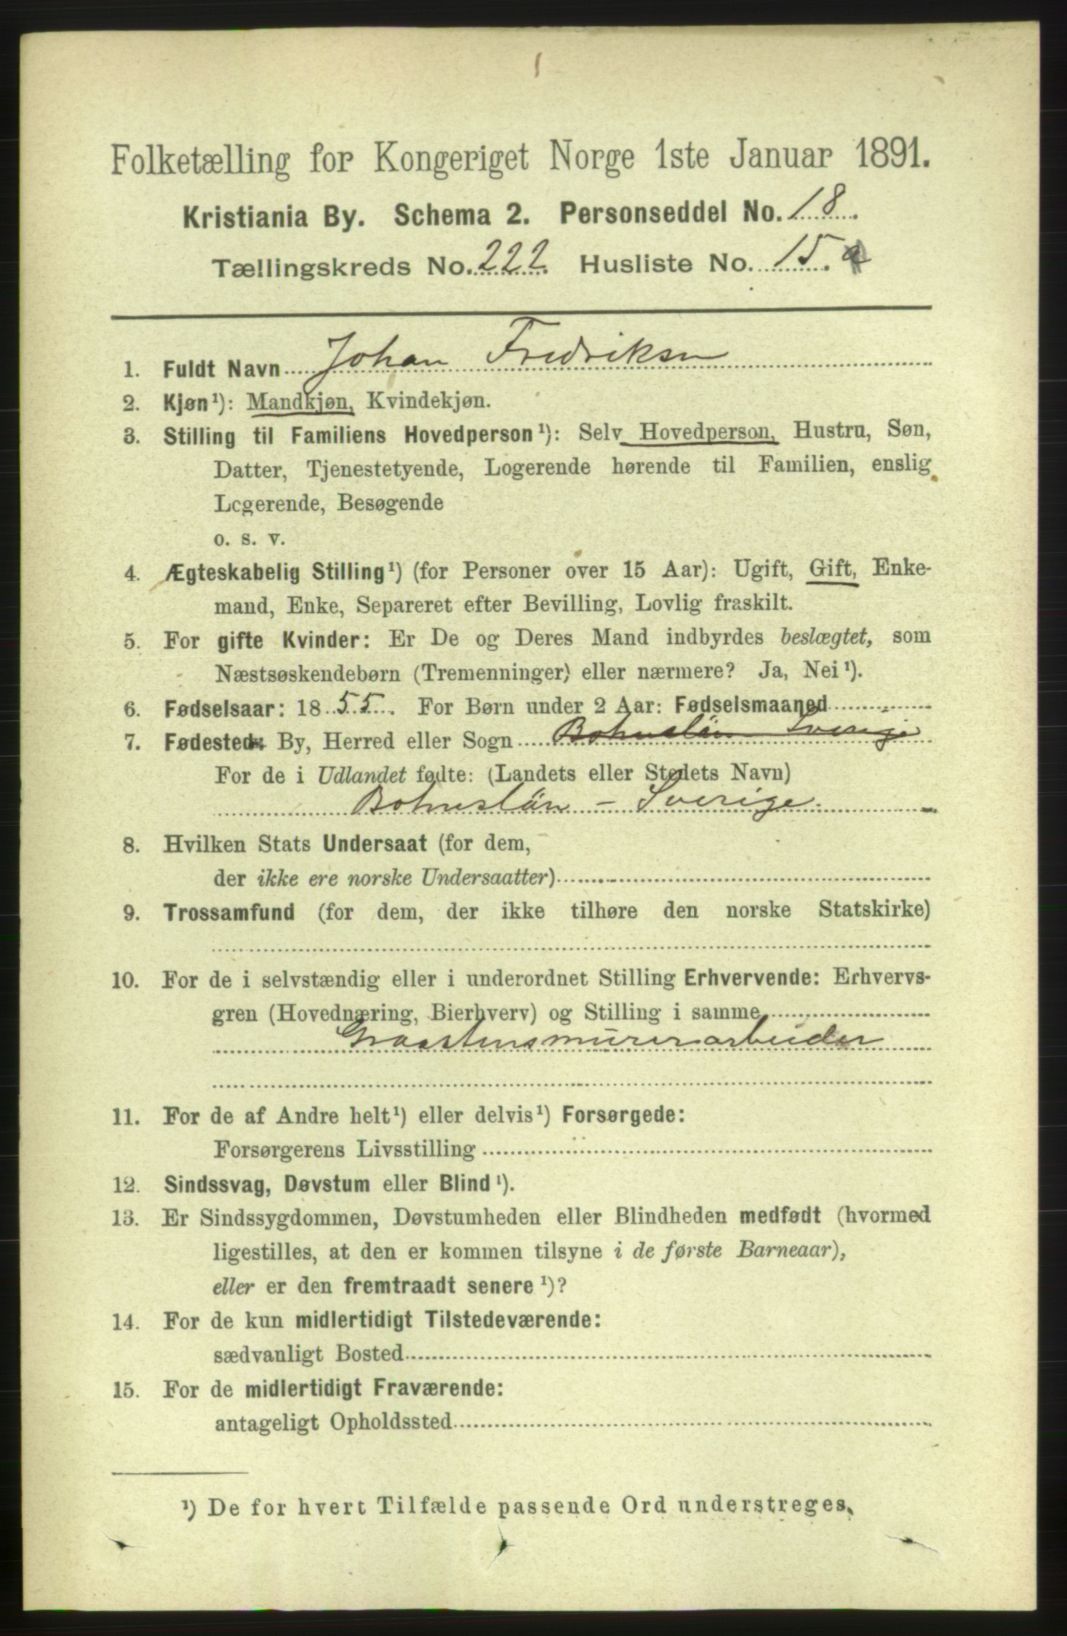 1
Folketælling for Kongeriget Norge 1ste Januar 1891.
Kristiania By. Schema 2. Personseddel No. 18.
Tællingskreds No. 222. Husliste No. 15. a
1. Fuldt Navn Johan Fredriksen
2. Kjøn¹): Mandkjøn, Kvindekjøn.
3. Stilling til Familiens Hovedperson¹): Selv Hovedperson, Hustru, Søn,
Datter, Tjenestetyende, Logerende hørende til Familien, enslig
Logerende, Besøgende
o. s. v.
4. Ægteskabelig Stilling¹) (for Personer over 15 Aar): Ugift, Gift, Enke-
mand, Enke, Separeret efter Bevilling, Lovlig fraskilt.
5. For gifte Kvinder: Er De og Deres Mand indbyrdes beslægtet, som
Næstsøskendebørn (Tremenninger) eller nærmere? Ja, Nei¹).
6. Fødselsaar: 1855. For Børn under 2 Aar: Fødselsmaaned
7. Fødested: By, Herred eller Sogn Bohuslän Sverige
For de i Udlandet fødte: (Landets eller Stedets Navn)
Bohuslän – Sverige.
8. Hvilken Stats Undersaat (for dem,
der ikke ere norske Undersaatter)
9. Trossamfund (for dem, der ikke tilhøre den norske Statskirke)
10. For de i selvstændig eller i underordnet Stilling Erhvervende: Erhvervs-
gren (Hovednæring, Bierhverv) og Stilling i samme
Graastensmurerarbeider
11. For de af Andre helt¹) eller delvis¹) Forsørgede:
Forsørgerens Livsstilling
12. Sindssvag, Døvstum eller Blind¹).
13. Er Sindssygdommen, Døvstumheden eller Blindheden medfødt (hvormed
ligestilles, at den er kommen tilsyne i de første Barneaar),
eller er den fremtraadt senere¹)?
14. For de kun midlertidigt Tilstedeværende:
sædvanligt Bosted
15. For de midlertidigt Fraværende:
antageligt Opholdssted
¹) De for hvert Tilfælde passende Ord understreges.